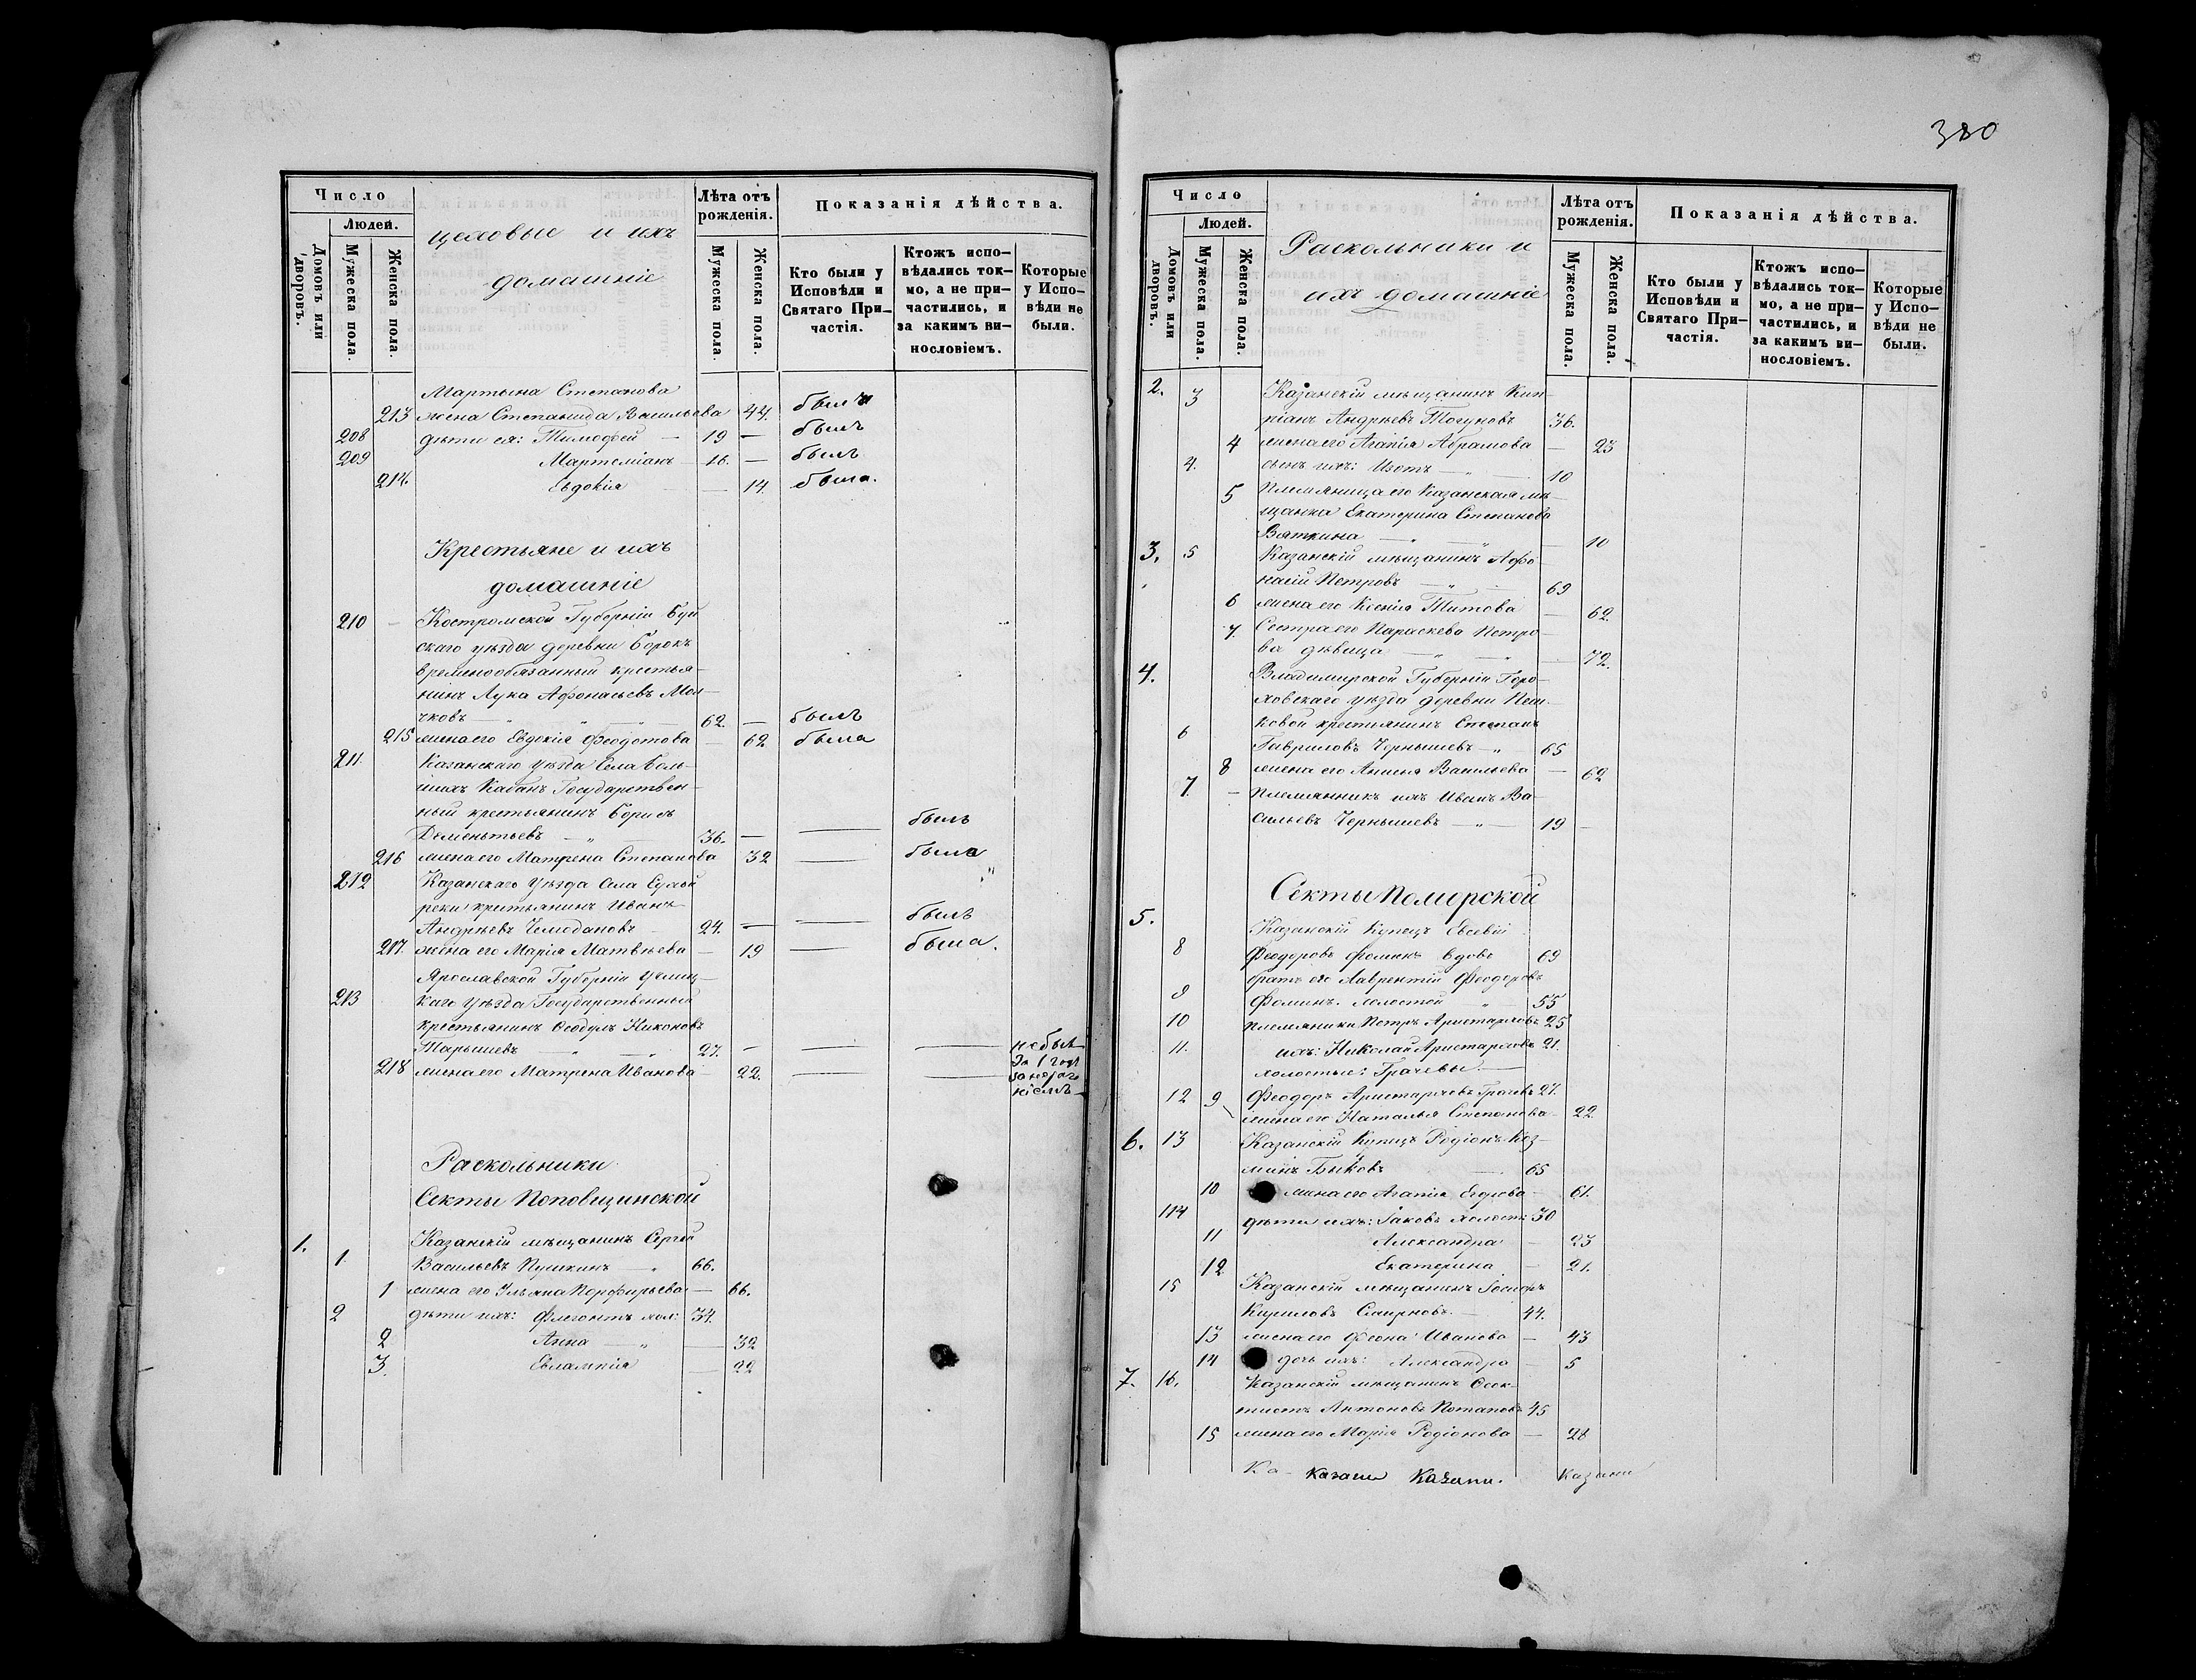 Число
Людей.
Домовъ или дворовъ.
Мужеска пола.
Женска пола.
цеховые и ихъ
домашніе
Лѣта отъ рожденія.
Мужеска пола.
Женска пола.
Показанія дѣйства.
Кто были у Исповѣди и Святаго При-частія.
Ктожъ испо-вѣдались ток-мо, а не при-частились, и за какимъ ви-нословіемъ.
Которые у Испо-вѣди не были.
Мартына Степанова
213 жена Степанида Васильева 44. была
208 дѣти ея: Тимофей — 19 — былъ
209 Мартеміанъ — 16. — былъ
214. Евдокія — 14. была.
Крестьяне и ихъ
домашніе
210 Костромской Губерніи Буй
скаго уѣзда деревни Борокъ
временообязанный крестья-
нинъ Лука Афонасьевъ Мол-
чковъ — " — " — 62. — былъ
215 жена его Евдокія Феодотова — 62 была
211 Казанскаго уѣзда Села Боль-
шихъ Кабанъ Государствен-
ный крестьянинъ Борисъ
Дементьевъ — " 36. — — былъ
216 жена его Матрена Степанова 32 — была
212 Казанскаго Уѣзда Села
реки крестьянинъ Иванъ
Андреевъ Чемодановъ 24. — — былъ
217. жена его Марія Матвѣева — 19 — была.
Ярославской Губерніи Углиц-
213 каго Уѣзда Государственный
крестьянинъ Ѳеодулъ Никоновъ
Марышевъ — " — " 27. — — — не былъ
218 жена его Матрена Иванова 22. — —
Раскольники
Секты Поповщинской
1. Казанскій мѣщанинъ Сергей
1 Васильевъ Пушкинъ — " 66.
1 жена его Ульяна Порфирьева — 66.
2 дѣти ихъ: Флегонтъ хол: 34.
2 Анна — " — 32
3. Евлампія — 22
380
Число
Людей.
Домовъ или дворовъ.
Мужеска пола.
Женска пола.
Раскольники и
ихъ домашніе
Лѣта отъ рожденія.
Мужеска пола.
Женска пола.
Показанія дѣйства.
Кто были у Исповѣди и Святаго При-частія.
Ктожъ испо-вѣдались ток-мо, а не при-частились, и за какимъ ви-нословіемъ.
Которые у Испо-вѣди не были.
2. 3 Казанскій мѣщанинъ Кип-
ріанъ Андреевъ 36.
4 жена его Агапія Абрамова — 23
4. сынъ ихъ: Изотъ — " — 10
5 Племянница его Казанская мѣ-
щанка Екатерина Степанова
Вяткина — " — " — 10
3. 5 Казанскій мѣщанинъ Афо
насій Петровъ — " — 69
6 жена его Ксенія Титова — 62.
7. Сестра его Параскева Петро-
ва дѣвица — " — " — 72.
4. Владимирской Губерніи Горо-
ховскаго уѣзда деревни Пеш-
ковой крестьянинъ Степанъ
6 Гавриловъ Чернышевъ — " — 65
8 жена его Анисья Васильева — 62
7. — Племянникъ ихъ Иванъ Ва-
сильевъ Чернышевъ — " — 19 —
Секты Поморской
5. Казанскій Купецъ Евсевій
8 Феодоровъ Фоминъ вдовъ 69
братъ его Лаврентій Феодоровъ
9 Фоминъ. холостой " 55
10 племянники Петръ Аристарховъ 25
11. ихъ: Николай Аристарховъ 21.
холостые: Грачевы. —
12 9 Феодоръ Аристарховъ Грачевъ 27.
жена его Наталья Степанова — 22.
6. 13 Казанскій Купецъ Родіонъ Коз-
минъ Быковъ — 65
10 жена его Агапія Егорова — 61.
114 дѣти ихъ: Іаковъ холост: 30
11 Александра — 23
12 Екатерина — 21.
15 Казанскій мѣщанинъ Іосифъ
Кириловъ Смирновъ. — 44.
13 жена его Феона Иванова — 43
14 дочь ихъ: Александра — 5
7. 16. Казанскій мѣщанинъ Ѳеок-
тистъ Антоновъ Потаповъ 45
15 жена его Марія Родіонова — 28
Ка- Казани Казани. Казани